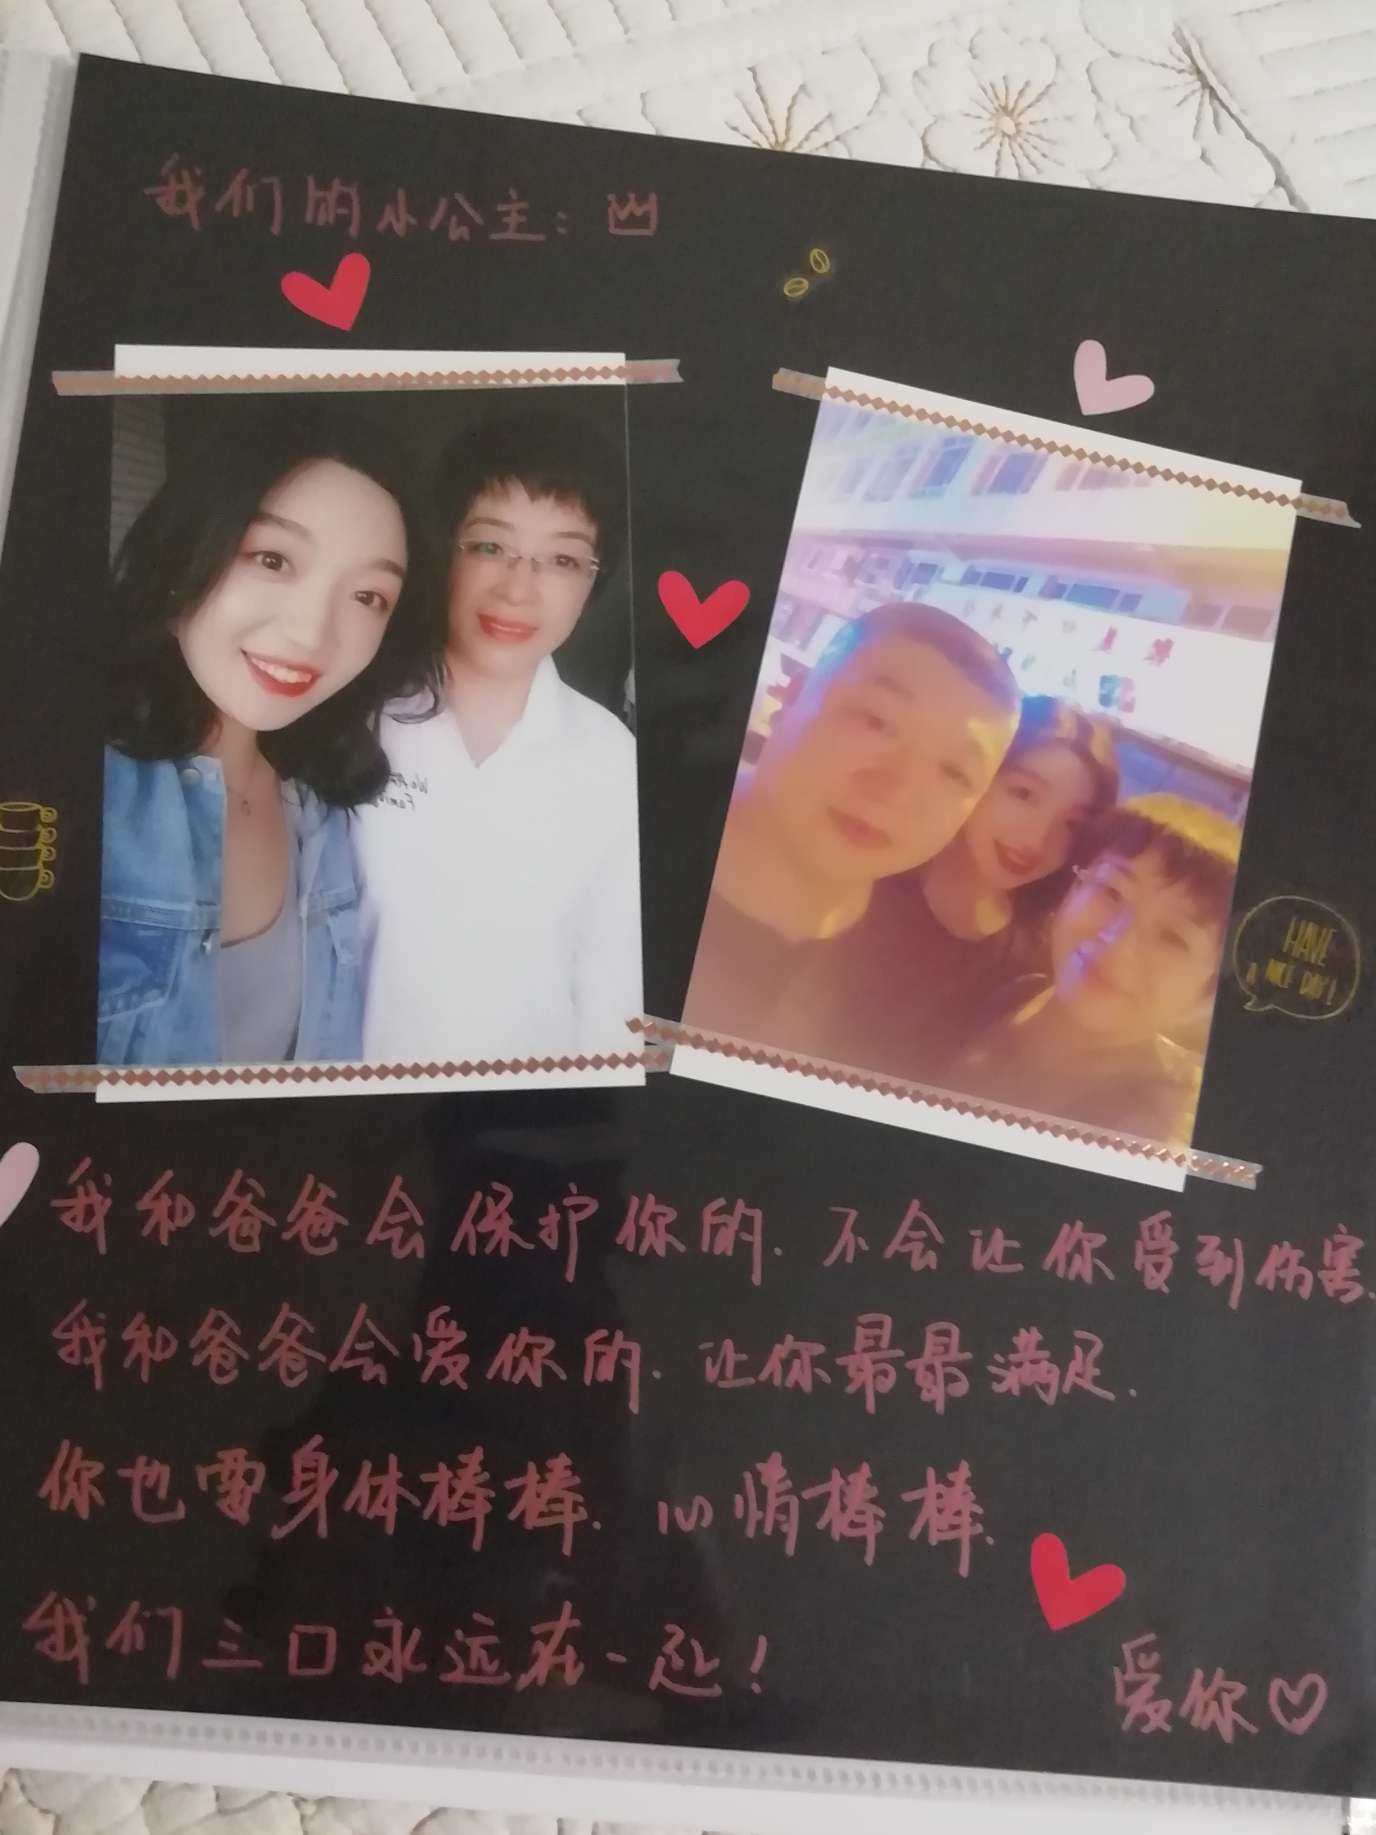 我们的小公主:
HAVE
A NICE DAY!
我和爸爸会保护你的.不会让你受到伤害.
我和爸爸会爱你的.让你最最满足.
你也要身体棒棒.心情棒棒.
我们三口永远在一起!
爱你♡